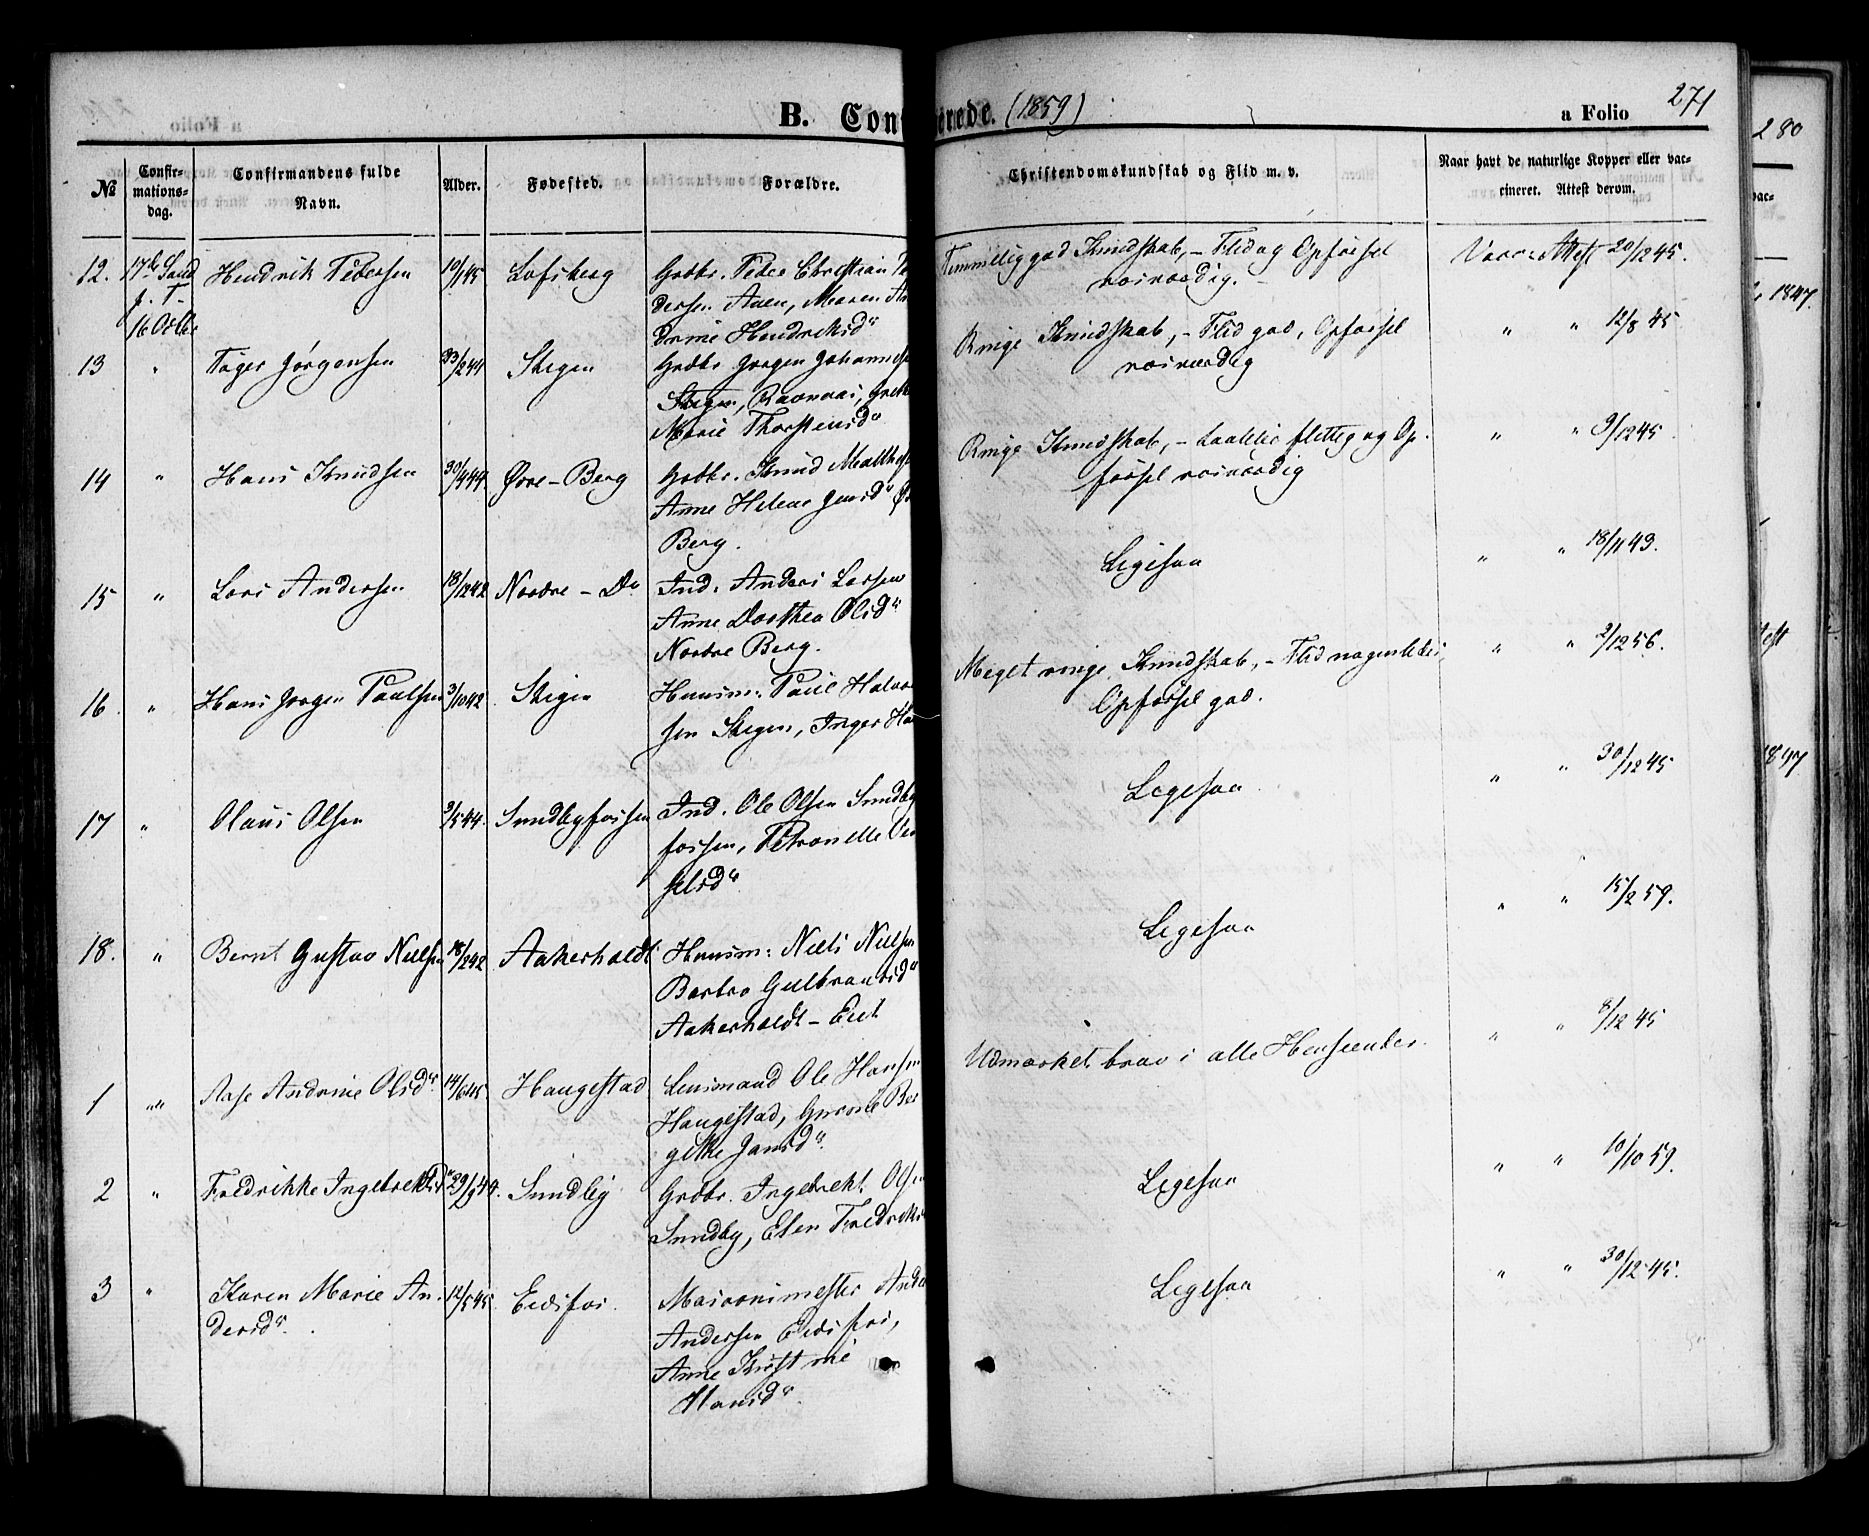 B. Conf
erede. (1859)
a Folio 271
280
№
Confir-
mations-
dag.
Confirmandens fulde
Navn.
Alder.
Fødested.
Forældre.
Christendomskundskab og Flid m. v.
Naar havt de naturlige Kopper eller vac-
cineret. Attest derom.
12. 17de Sønd Hendrik Pedersen 10/1 45 Lofsberg Grdbr. Peder Christian
f. T.
16 Octbr
dersen Maren
drine Hendriksdr
Temmelig god Kundskab, - Flid og Opførsel
roesværdig.
Vacc: Attest 20/12 45.
13 " Jørgensen 44 Skigen Grdbr Jørgen Johannes
Skigen, Ravnvei,
Marie Thorstensdr
Ringe Kundskab, - Flid god, Opførsel
roesværdig
" " 12/8 45
14 " Hans Knudsen 30/4 44 Øvre - Berg Grdbr. Knud Matthes
Anne Helene Jensdr Ø
Berg.
Ringe Kundskab, - flittig og Op-
førsel roesværdig
" " 9/12 45
15 " Lars Andersen 18/12 42 Nordre - Do Ind. Anders Larsen
Anne Dorthea Olsdr
Nordre Berg.
Ligesaa
" " 18/11 43.
16 " Hans Jørgen Paulsen 3/10 42 Skigen Huusm: Paul Halvor
sen Skigen, Inger Ha
Meget ringe Kundskab, - Flid nogenledes,
Opførsel god.
" " 2/12 56.
17 " Olaus Olsen 3/5 44. Sundbyfossen Ind. Ole Olsen Sundby
fossen, Petronelle
selsdr
Ligesaa
" " 30/12 45
18. " Bernt Gustav Nielsen 18/2 42 Aakerholdt Huusm: Niels Nielsen
Barbro Gulbransdr
Aakerholdt - Eiet
Ligesaa
" " 15/2 59.
1 " " Aase Andrine Olsdr 14/6 45 Haugestad Lensmand Ole Hansen
Haugestad, Gurone Ber
gitte Jansdr
Udmærket brav i alle Henseender
" " 8/12 45
2 " Fredrikke Ingebrektsdr 29/9 44. Sundby Grdbr. Ingebrekt Olsen
Sundby, Elen Fredriks
Ligesaa
" " 10/10 59.
3 " Karen Marie An-
dersdr
12/5 45 Eidsfos. Masovnsmester Ande
Andersen Eidsfos,
Anne Kirstine
Hansdr
Ligesaa
" " 30/12 45.